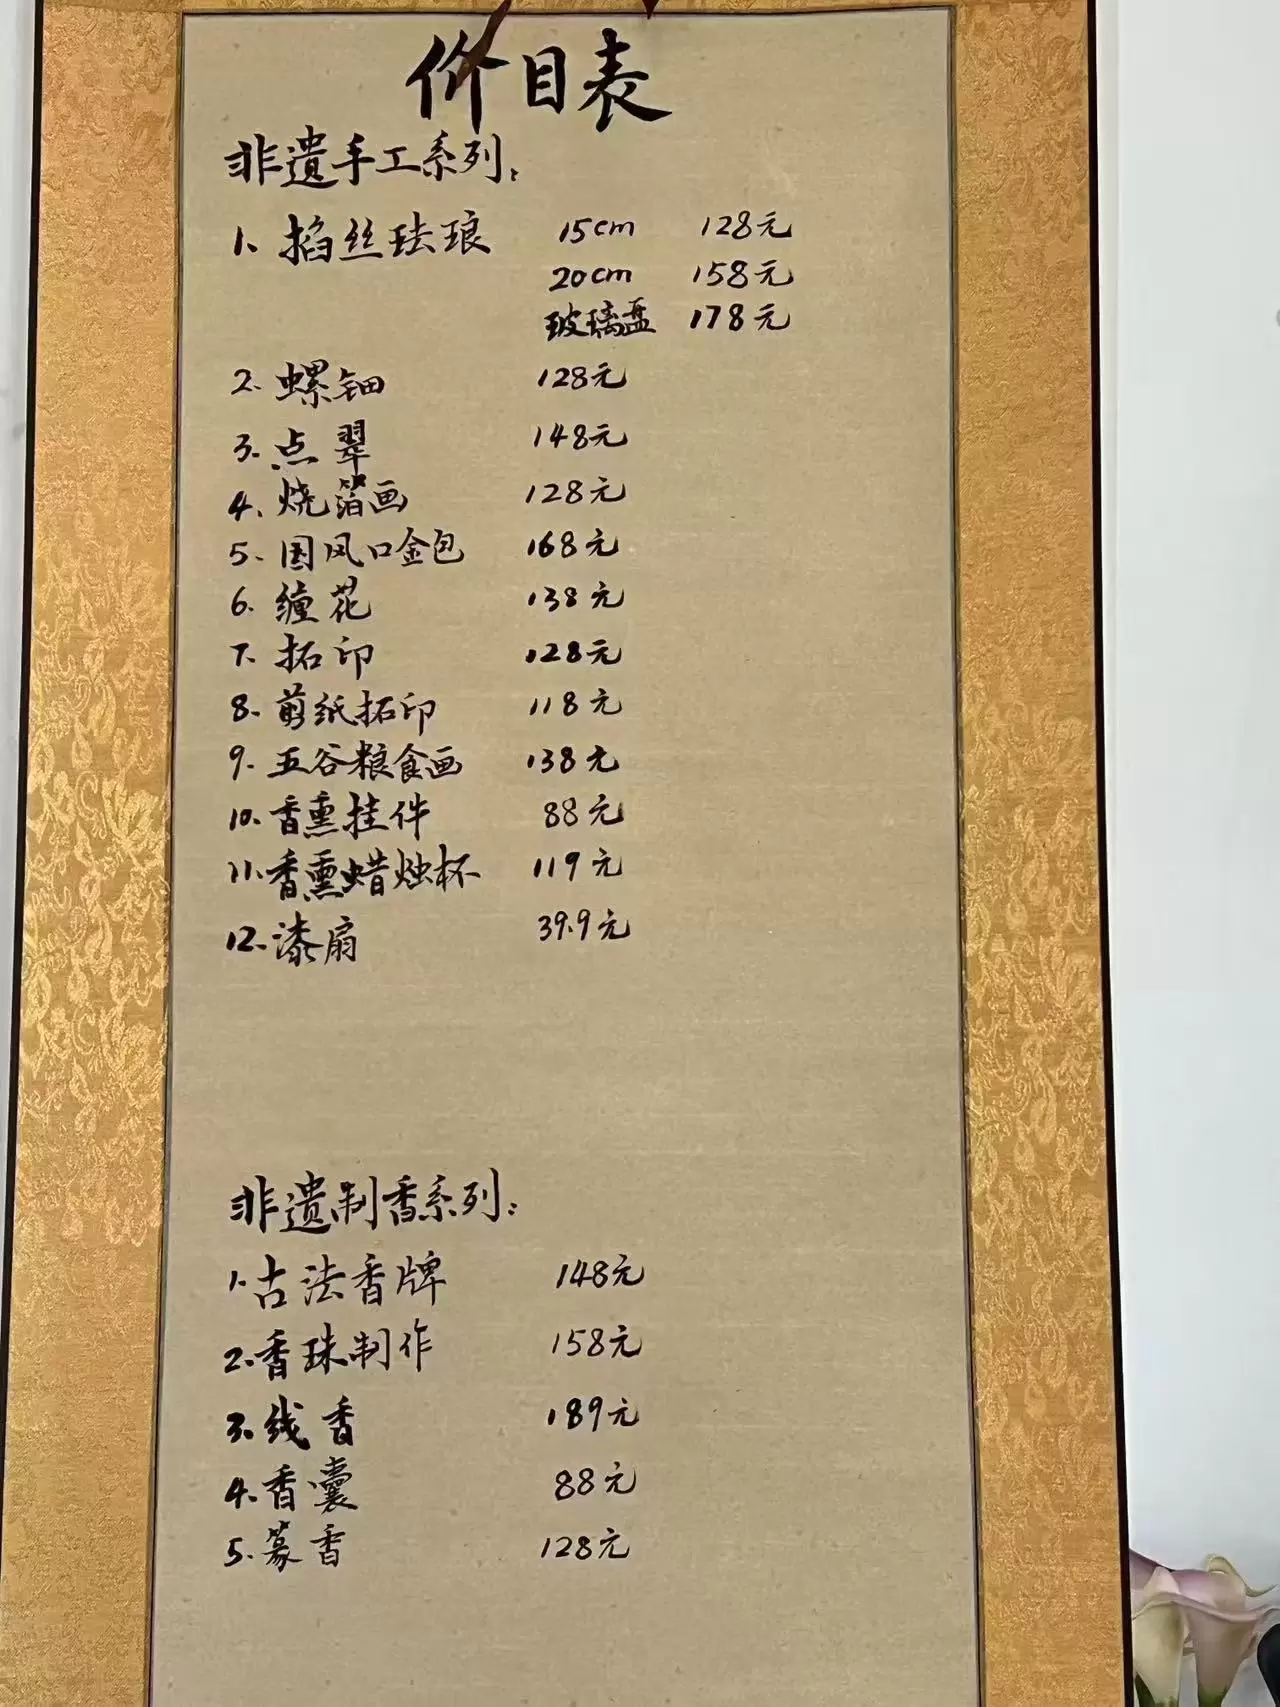 价目表
非遗手工系列:
1、掐丝珐琅 15cm 128元
20cm 158元
玻璃盖 178元
2. 螺钿 128元
3. 点翠 148元
4. 烧箔画 128元
5. 国风口金包 168元
6. 缠花 138元
7. 拓印 128元
8. 剪纸拓印 118元
9. 五谷粮食画 138元
10. 香熏挂件 88元
11. 香熏蜡烛杯 119元
12. 漆扇 39.9元
非遗制香系列:
1. 古法香牌 148元
2. 香珠制作 158元
3. 线香 189元
4. 香囊 88元
5. 篆香 128元